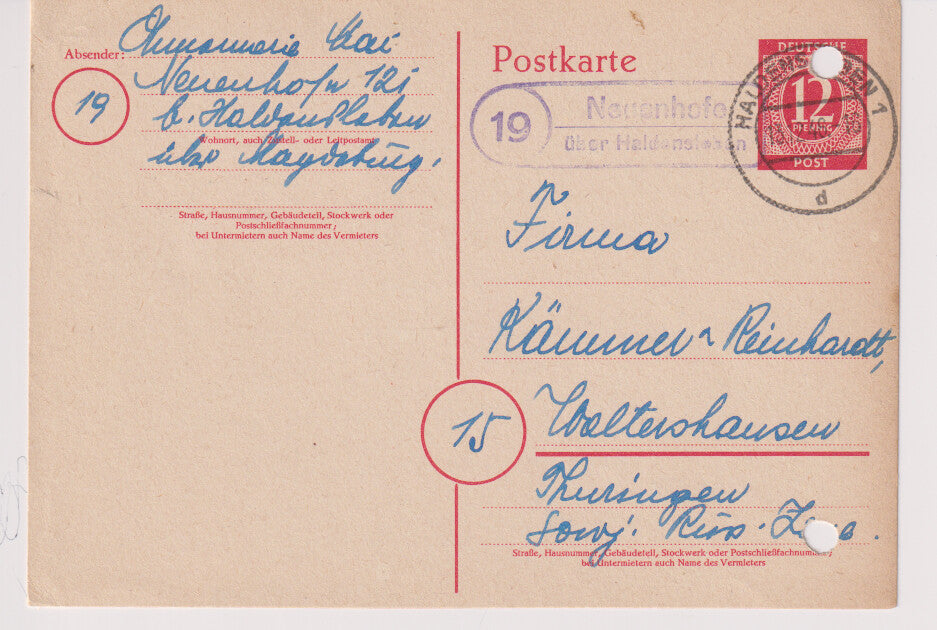 Absender: Annemarie Kai
Neuenhofe 121
b. Haldensleben
Wohnort, auch Zustell- oder Leitpostamt
über Magdeburg.
19
Straße, Hausnummer, Gebäudeteil, Stockwerk oder
Postschließfachnummer;
bei Untermietern auch Name des Vermieters
Postkarte
19
Neuenhofe
über Haldensleben
DEUTSCHE
12
PFENNIG
POST
HALDENSLEBEN 1
d
Firma
Kämmer u Reinhardt,
15
Waltershausen
Thüringen
Sowj. Russ. Zone.
Straße, Hausnummer, Gebäudeteil, Stockwerk oder Postschließfachnummer;
bei Untermietern auch Name des Vermieters